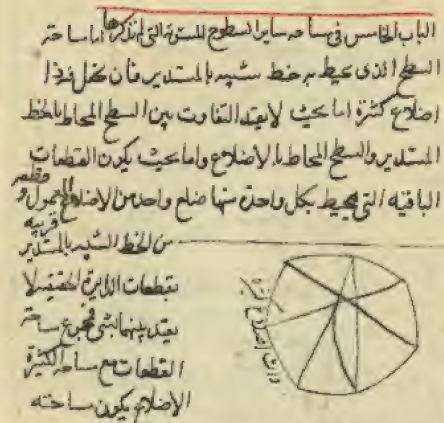 الباب الخامس فى مساحه ساير السطوح المستويه التى لم نذكرها اما مساحته
السطح الذى يحيط به خط شبيه بالمستدير فان يجعل فذا
اضلاع كثيرة اما بحيث لا يعتد التفاوت بين السطح المحاط بالخط
المستدير والسطح المحاط بالاضلاع واما بحيث يكون القطعات
الباقيه التى يحيط بكل واحدة منها ضلع واحد من الاضلاع المعمول و
قطعه
قريبه
من الخط الشبيه بالمستدير
بقطعات الدايرة الحقيقيه لا
يعتد بينهما شى فمجموع مساحة
القطعات مع مساحه الكثيرة
الاضلاع يكون مساحته
ذات اضلاع كثيرة